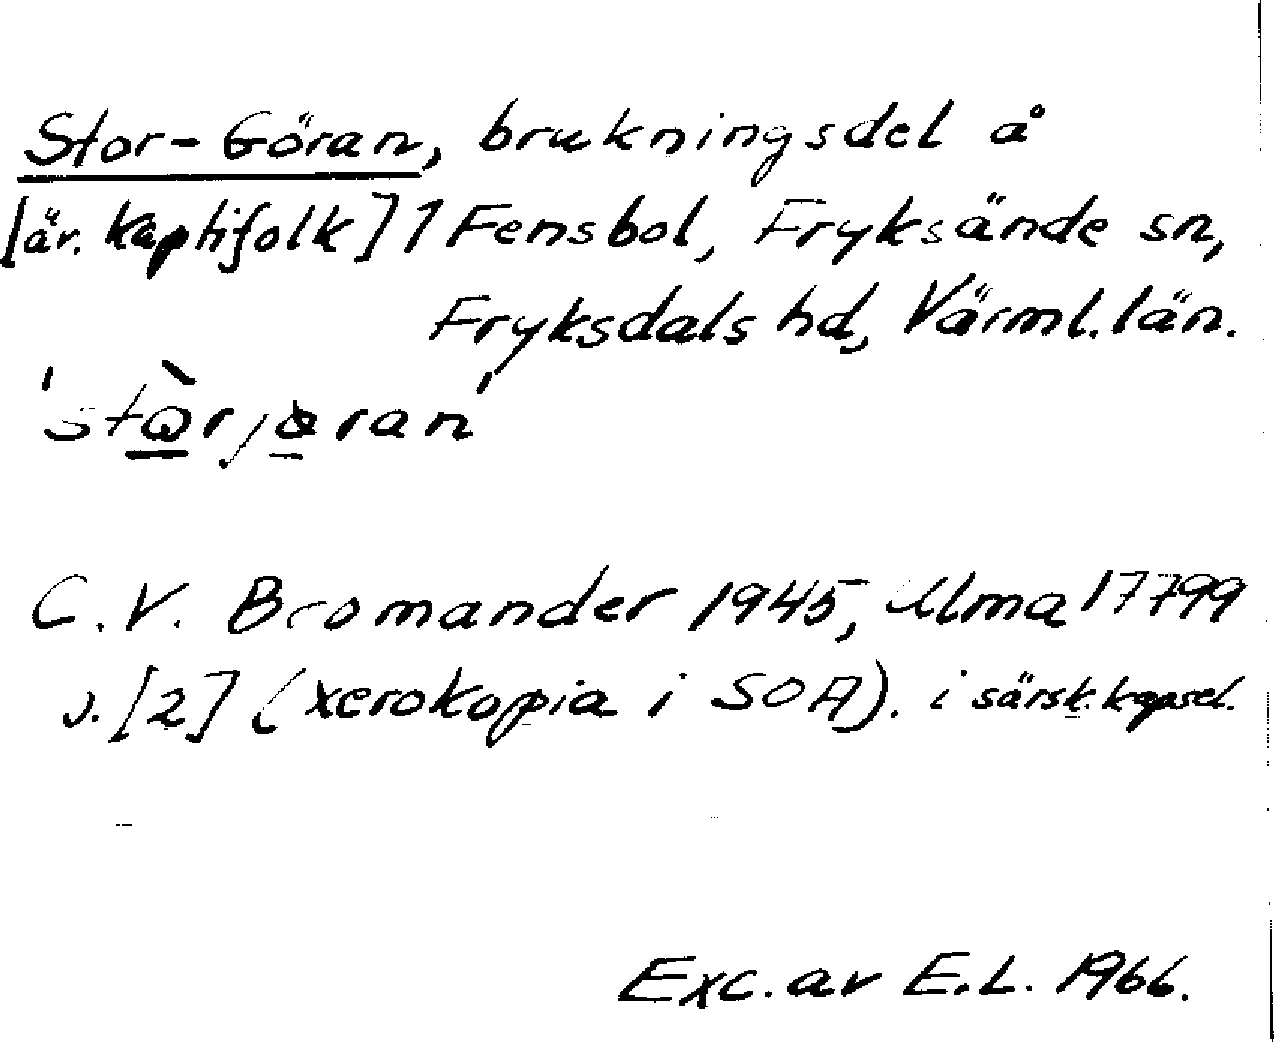 Stor-Göran, brukningsdel å
[är. kaptifolk] 1 Fensbol, Fryksände sn,
Fryksdals hd, Värml. län.
'stòrjøran'
C.V. Bromander 1945, Ulma 17799
s. [2] (xerokopia i SOA). i särsk. kapsel.
Exc. av E.L. 1966.